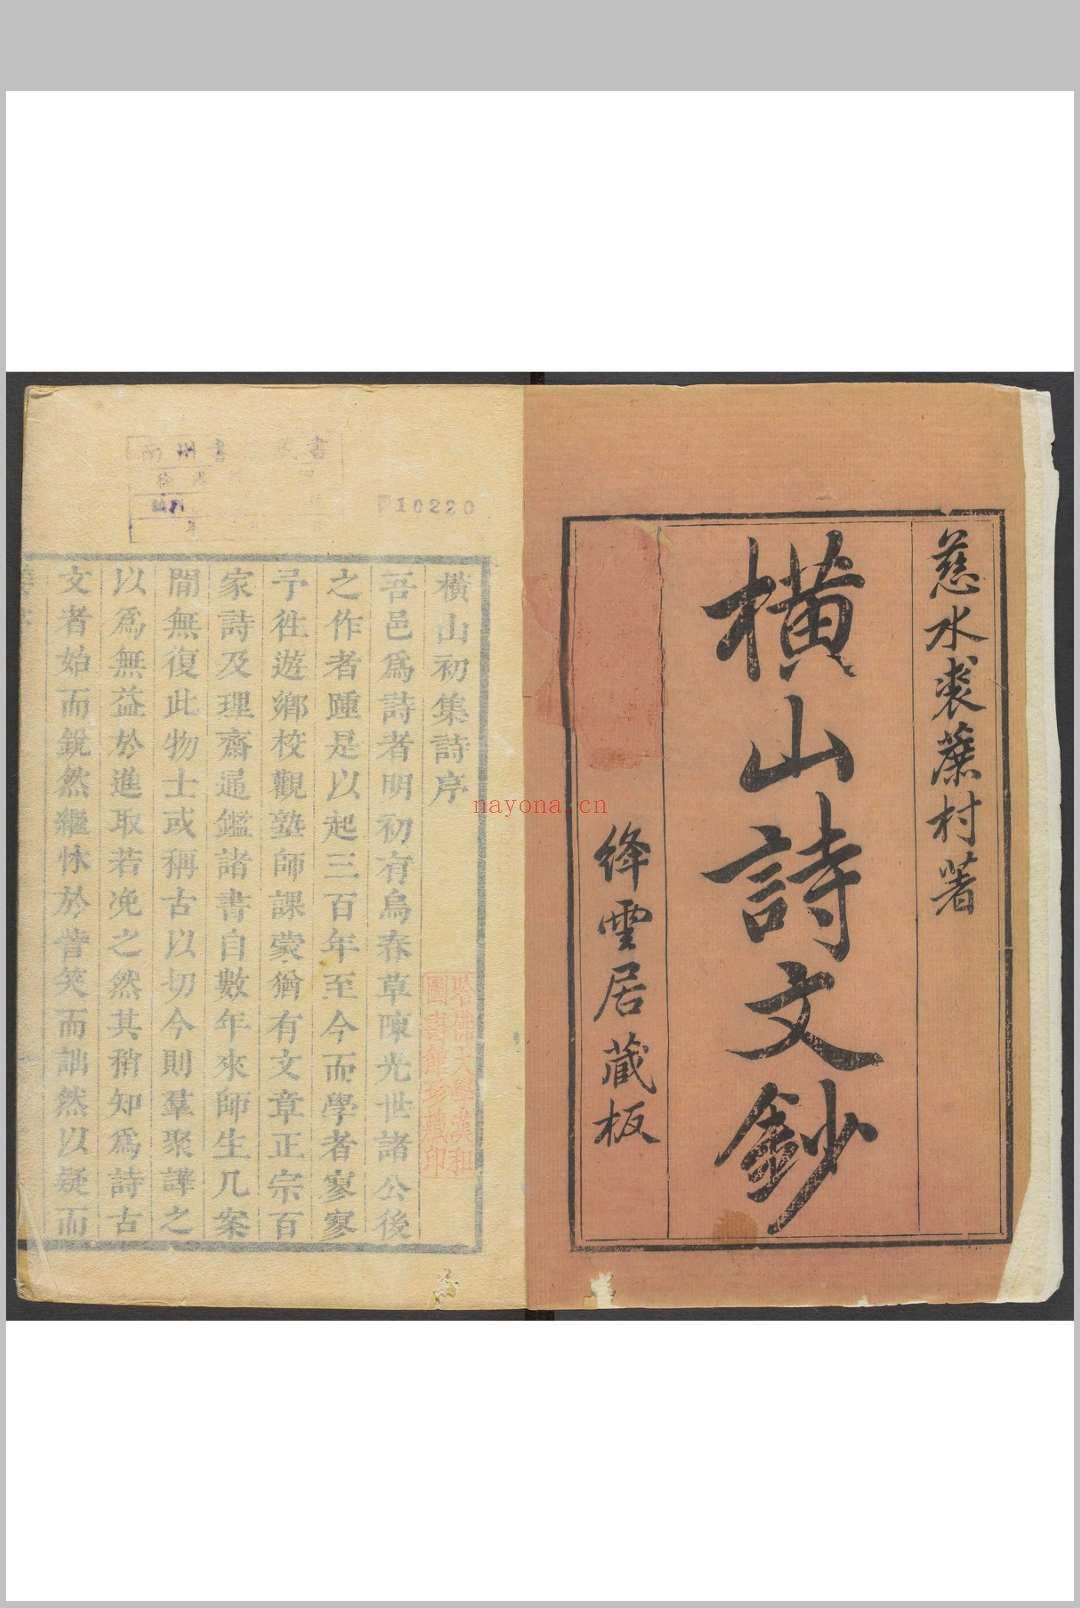 慈水裘蔗村著
橫山詩文鈔
絳雲居藏板
10220
橫山初集詩序
吾邑爲詩者明初有烏春草陳光世諸公後
之作者踵是以起三百年至今而學者寥寥
予徃遊鄉校觀塾師課蒙猶有文章正宗百
家詩及理齋通鑑諸書自數年來師生几案
間無復此物士或稱古以切今則羣聚譁之
以爲無益於進取若凂之然其稍知爲詩古
文者始而銳然繼怵於訾笑而詘然以疑而
哈佛大學漢和
圖書館珍藏印
nayona.cn